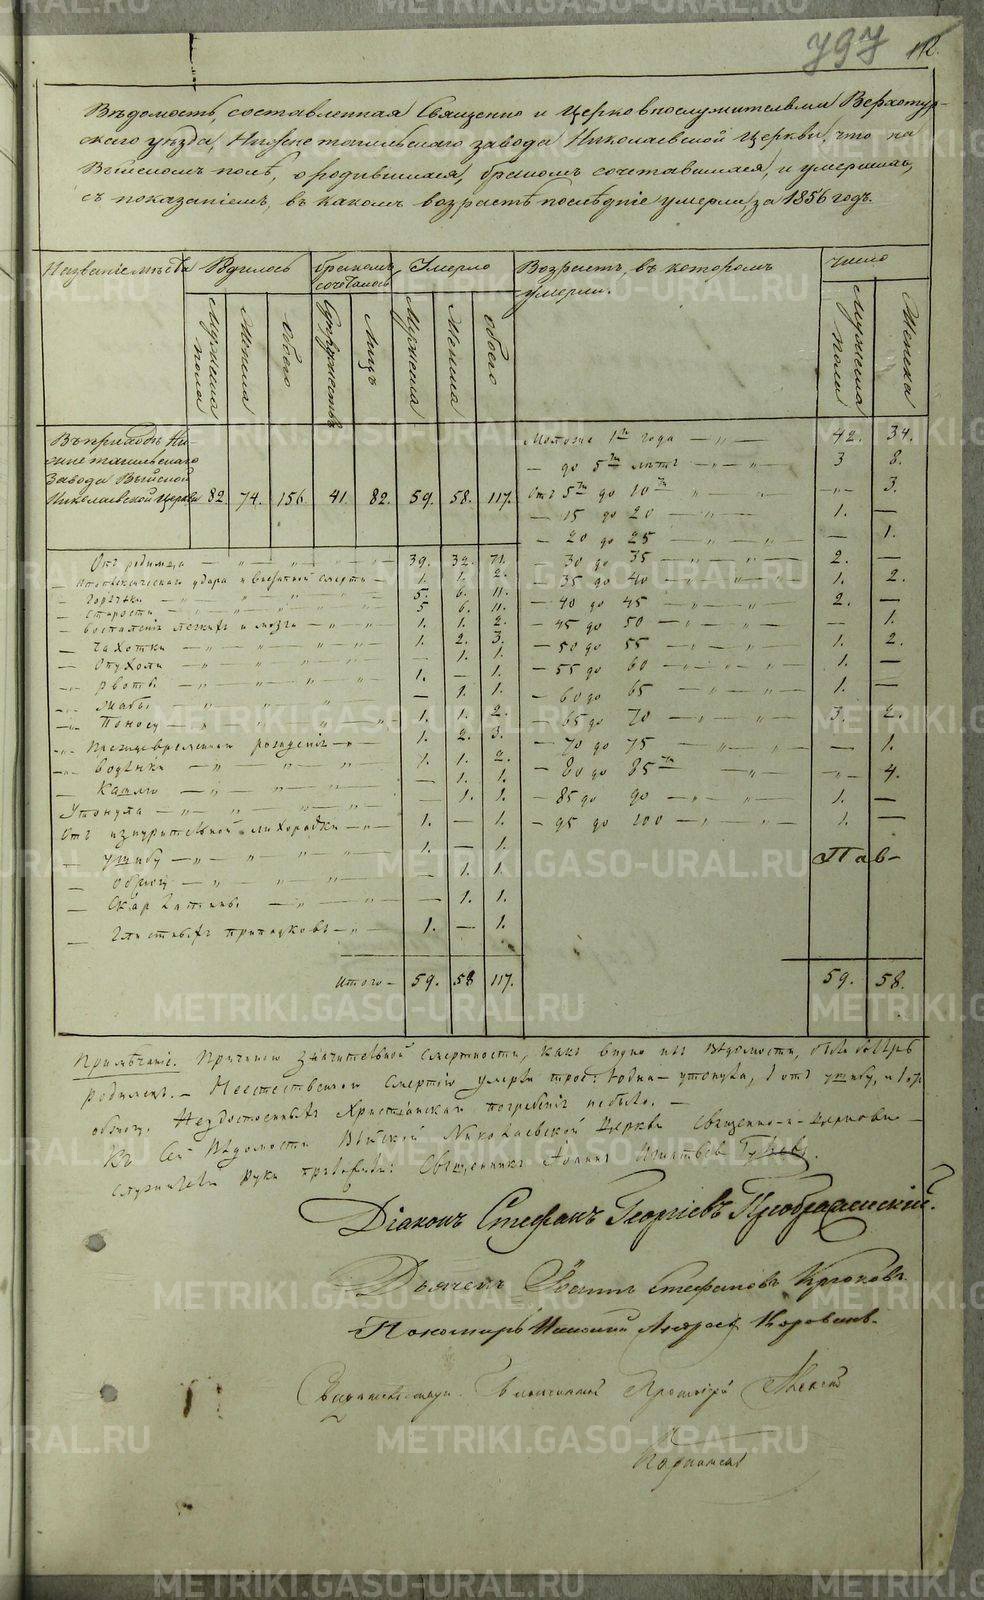 797
112.
Вѣдомость, составленная Священно и Церковнослужителями Верхотур-
скаго уѣзда, Нижнетагильскаго завода Николаевской Церкви, что на
Выйскомъ полѣ, о родившихся, бракомъ сочетавшихся, и умершихъ,
съ показаніемъ, въ какомъ возрастѣ послѣдніе умерли, за 1856 годъ.
Названіе мѣста
бракомъ сочеталось
Умерло
Возрастъ, въ которомъ умерли.
число
Мужеска пола
Женска
Обоего
Супружествъ
Лицъ
Мужеска
Женска
обоего
Мужеска пола
Женска
Въ приходѣ Ни-
жнетагильскаго
Завода Выйской
Николаевской Церкви 82. 74. 156 41. 82. 59. 58. 117.
Моложе 1го года — „ — 42. 34.
— до 5ти лѣтъ — „ — 3 8.
Отъ 5ти до 10ти „ — „ — „ 3.
— 15 до 20 — „ — 1. —
— 20 до 25 — „ — — 1.
— 30 до 35 — „ — 2. —
— 35 до 40 — „ — 1. 2.
— 40 до 45 — „ — 2. —
— 45 до 50 — „ — — 1.
— 50 до 55 — „ — 1. 2.
— 55 до 60 — „ — 1. —
— 60 до 65 — „ — 1. —
— 65 до 70 — „ — 3. 2.
— 70 до 75 — „ — — 1.
— 80 до 85ти — „ — „ 4.
— 85 до 90 — „ — 1. —
— 95 до 100 — „ — 1. —
Отъ родимца — 39. 32. 71.
— Апоплексическаго удара и внезапной смерти — 1. 1. 2.
— Горячки — 5. 6. 11.
— Старости — 5 6. 11.
— воспаленія легкихъ и мозга — 1. 1. 2.
— Чахотки — 1. 2. 3.
— Опухоли — — 1. 1.
— рвоты — 1. — 1.
— жабы — — 1. 1.
— Поносу — 1. 1. 2.
— Преждевременнаго рожденія — 1. 2. 3.
— водянки — 1. 1. 2.
— Кашлю — — 1. 1.
Утонула — — 1. 1.
Отъ изнурительной лихорадки — 1. — 1.
— ушибу — 1. — 1.
— обжогу — — 1. 1.
— Скарлатины — — 1. 1.
— Глистныхъ припадковъ — 1. — 1.
Итого — 59. 58 117.
59. 58.
Примѣчаніе. Причиною значительной смертности, какъ видно изъ вѣдомости, былъ
родимецъ. — Неестественною смертію умерли трое: 1 одна — утонула, 1 отъ ушибу, и 1 отъ
обжогу. Неудостоенныхъ Христіанскаго погребенія небыло. —
Къ сей Вѣдомости Выйской Николаевской Церкви священно-и-церковно-
служители руки приложили: Священникъ Іоаннъ
Діаконъ Стефанъ Георгіевъ Преображенскій.
Дьячекъ Іоаннъ Стефановъ Крюковъ.
Пономарь Коровинъ.
Свидѣтельствовалъ Благочинный Протоіерей Алексій
METRIKI.GASO-URAL.RU